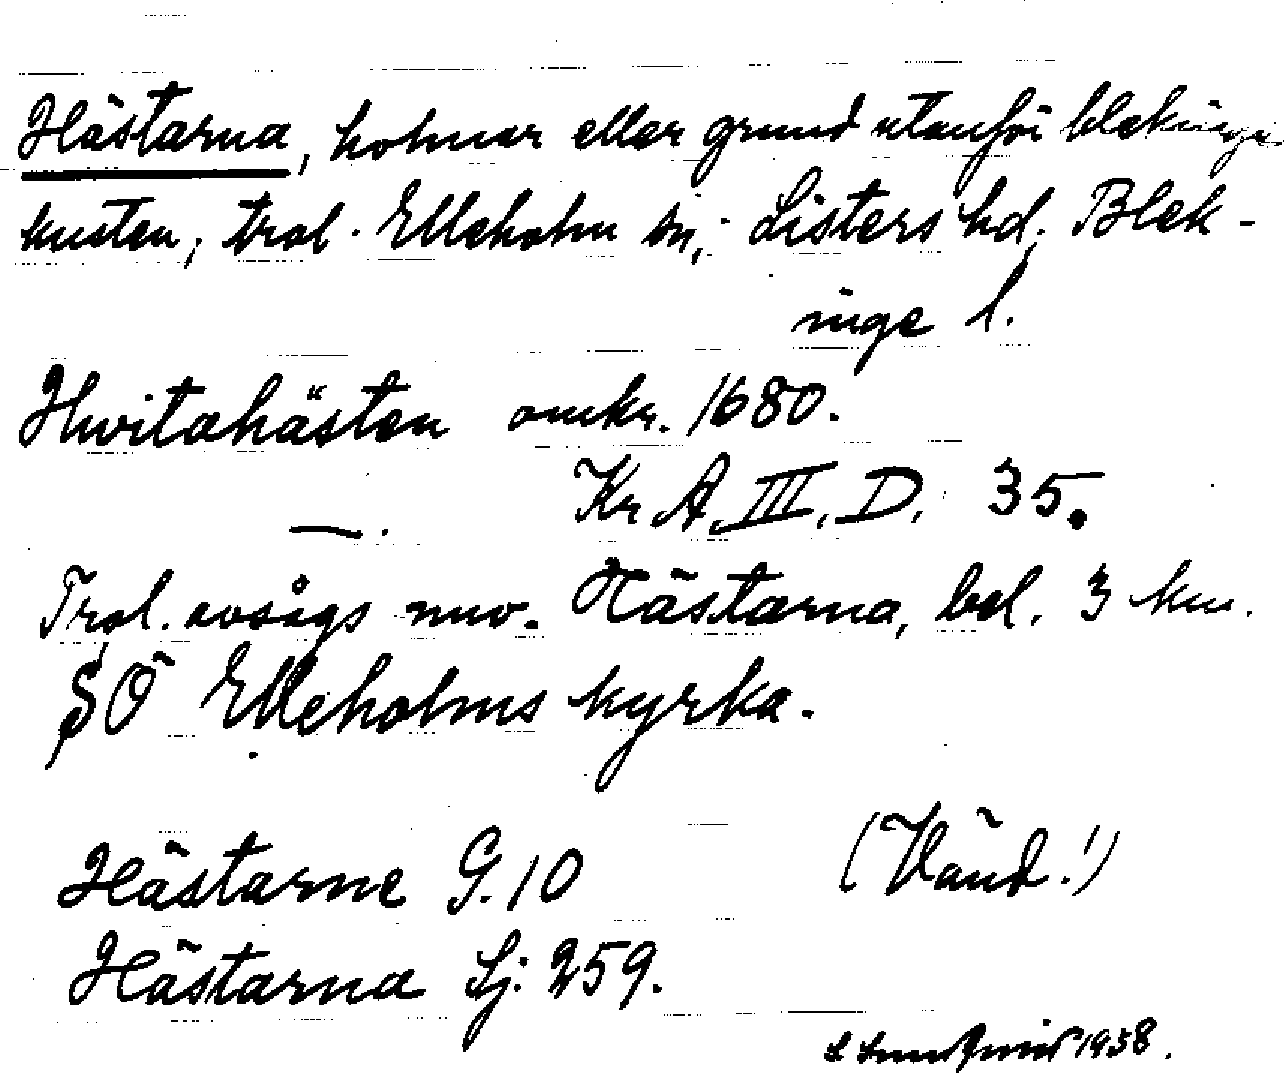 Hästarna, holmar eller grund utanför blekinge
kusten, trol. Elleholm sn, Listers hd, Blek-
inge l.
Hwitahästen omkr. 1680.
Kr A III. D. 35.
—.
Trol. avsågs nuv. Hästarna, bel. 3 km.
SÖ Elleholms kyrka.
Hästarne G. 10 (Vänd!)
Hästarna Sj: 259.
1938.